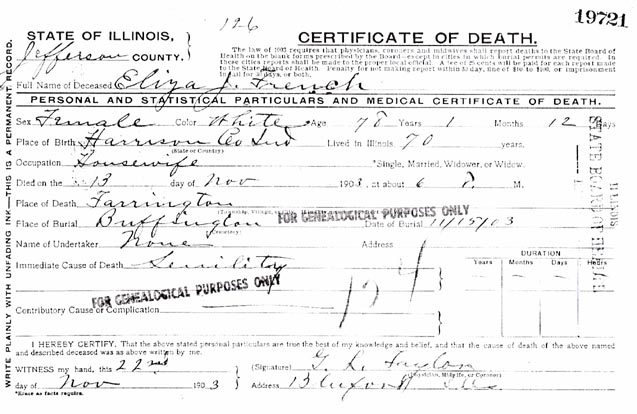 19721
126
STATE OF ILLINOIS,
Jefferson COUNTY.
CERTIFICATE OF DEATH.
The law of 1903 requires that physicians, coroners and midwives shall report deaths to the State Board of
Health on the blank form prescribed by the Board—except in cities in which burial permits are required. In
these cities reports shall be made to the proper local official. A fee of 25 cents will be paid for each report made
to the State Board of Health. Penalty for not making report within 30 days, fine of $10 to $100, or imprisonment
in jail for 30 days, or both.
Full Name of Deceased Eliza J. French
PERSONAL AND STATISTICAL PARTICULARS AND MEDICAL CERTIFICATE OF DEATH.
Sex Female Color White *Age 78 Years 1 Months 12 Days
Place of Birth Harrison Co Ind Lived in Illinois 70 years.
(State or Country)
Occupation Housewife *Single, Married, Widower, or Widow.
Died on the 13 day of Nov 1903, at about 6 P. M.
Place of Death Farrington
Place of Burial Buffington Date of Burial 11/15/03
FOR GENEALOGICAL PURPOSES ONLY
(Cemetery)
Name of Undertaker None Address
DURATION
Years Months Days Hours
Immediate Cause of Death Senility
FOR GENEALOGICAL PURPOSES ONLY
154
Contributory Cause or Complication
I HEREBY CERTIFY, That the above stated personal particulars are true the best of my knowledge and belief, and that the cause of death of the above named
and described deceased was as above written by me.
WITNESS my hand, this 22nd
day of Nov 1903
(Signature)
(Physician, Midwife, or Coroner)
Address Bluford Ills
*Erase as facts require.
WRITE PLAINLY WITH UNFADING INK—THIS IS A PERMANENT RECORD.
ILLINOIS
STATE BOARD OF HEALTH